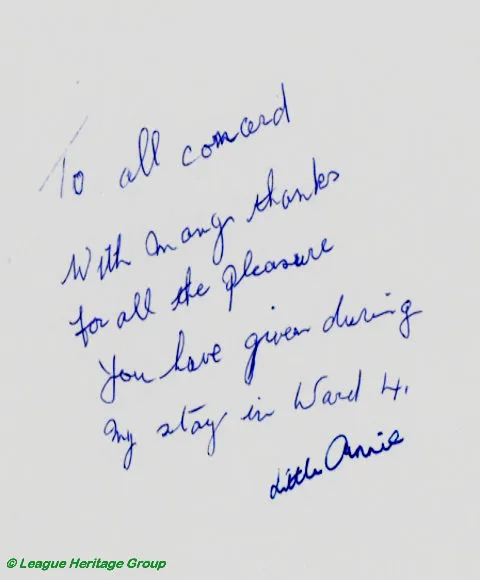 To all comcerd
With many thanks
for all the pleasure
You have given during
My stay in Ward 4.
Little Annie
© League Heritage Group